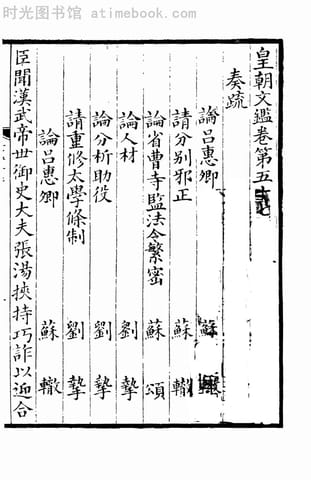 时光图书馆 - atimebook.com
皇朝文鑑卷第五十
奏疏
論呂惠卿 蘇轍
請分别邪正 蘇轍
論省曹寺監法令繁密 蘇頌
論人材 劉摯
論分析助役 劉摯
請重修太學條制 劉摯
論呂惠卿 蘇轍
臣聞漢武帝世御史大夫張湯挾持巧詐以迎合